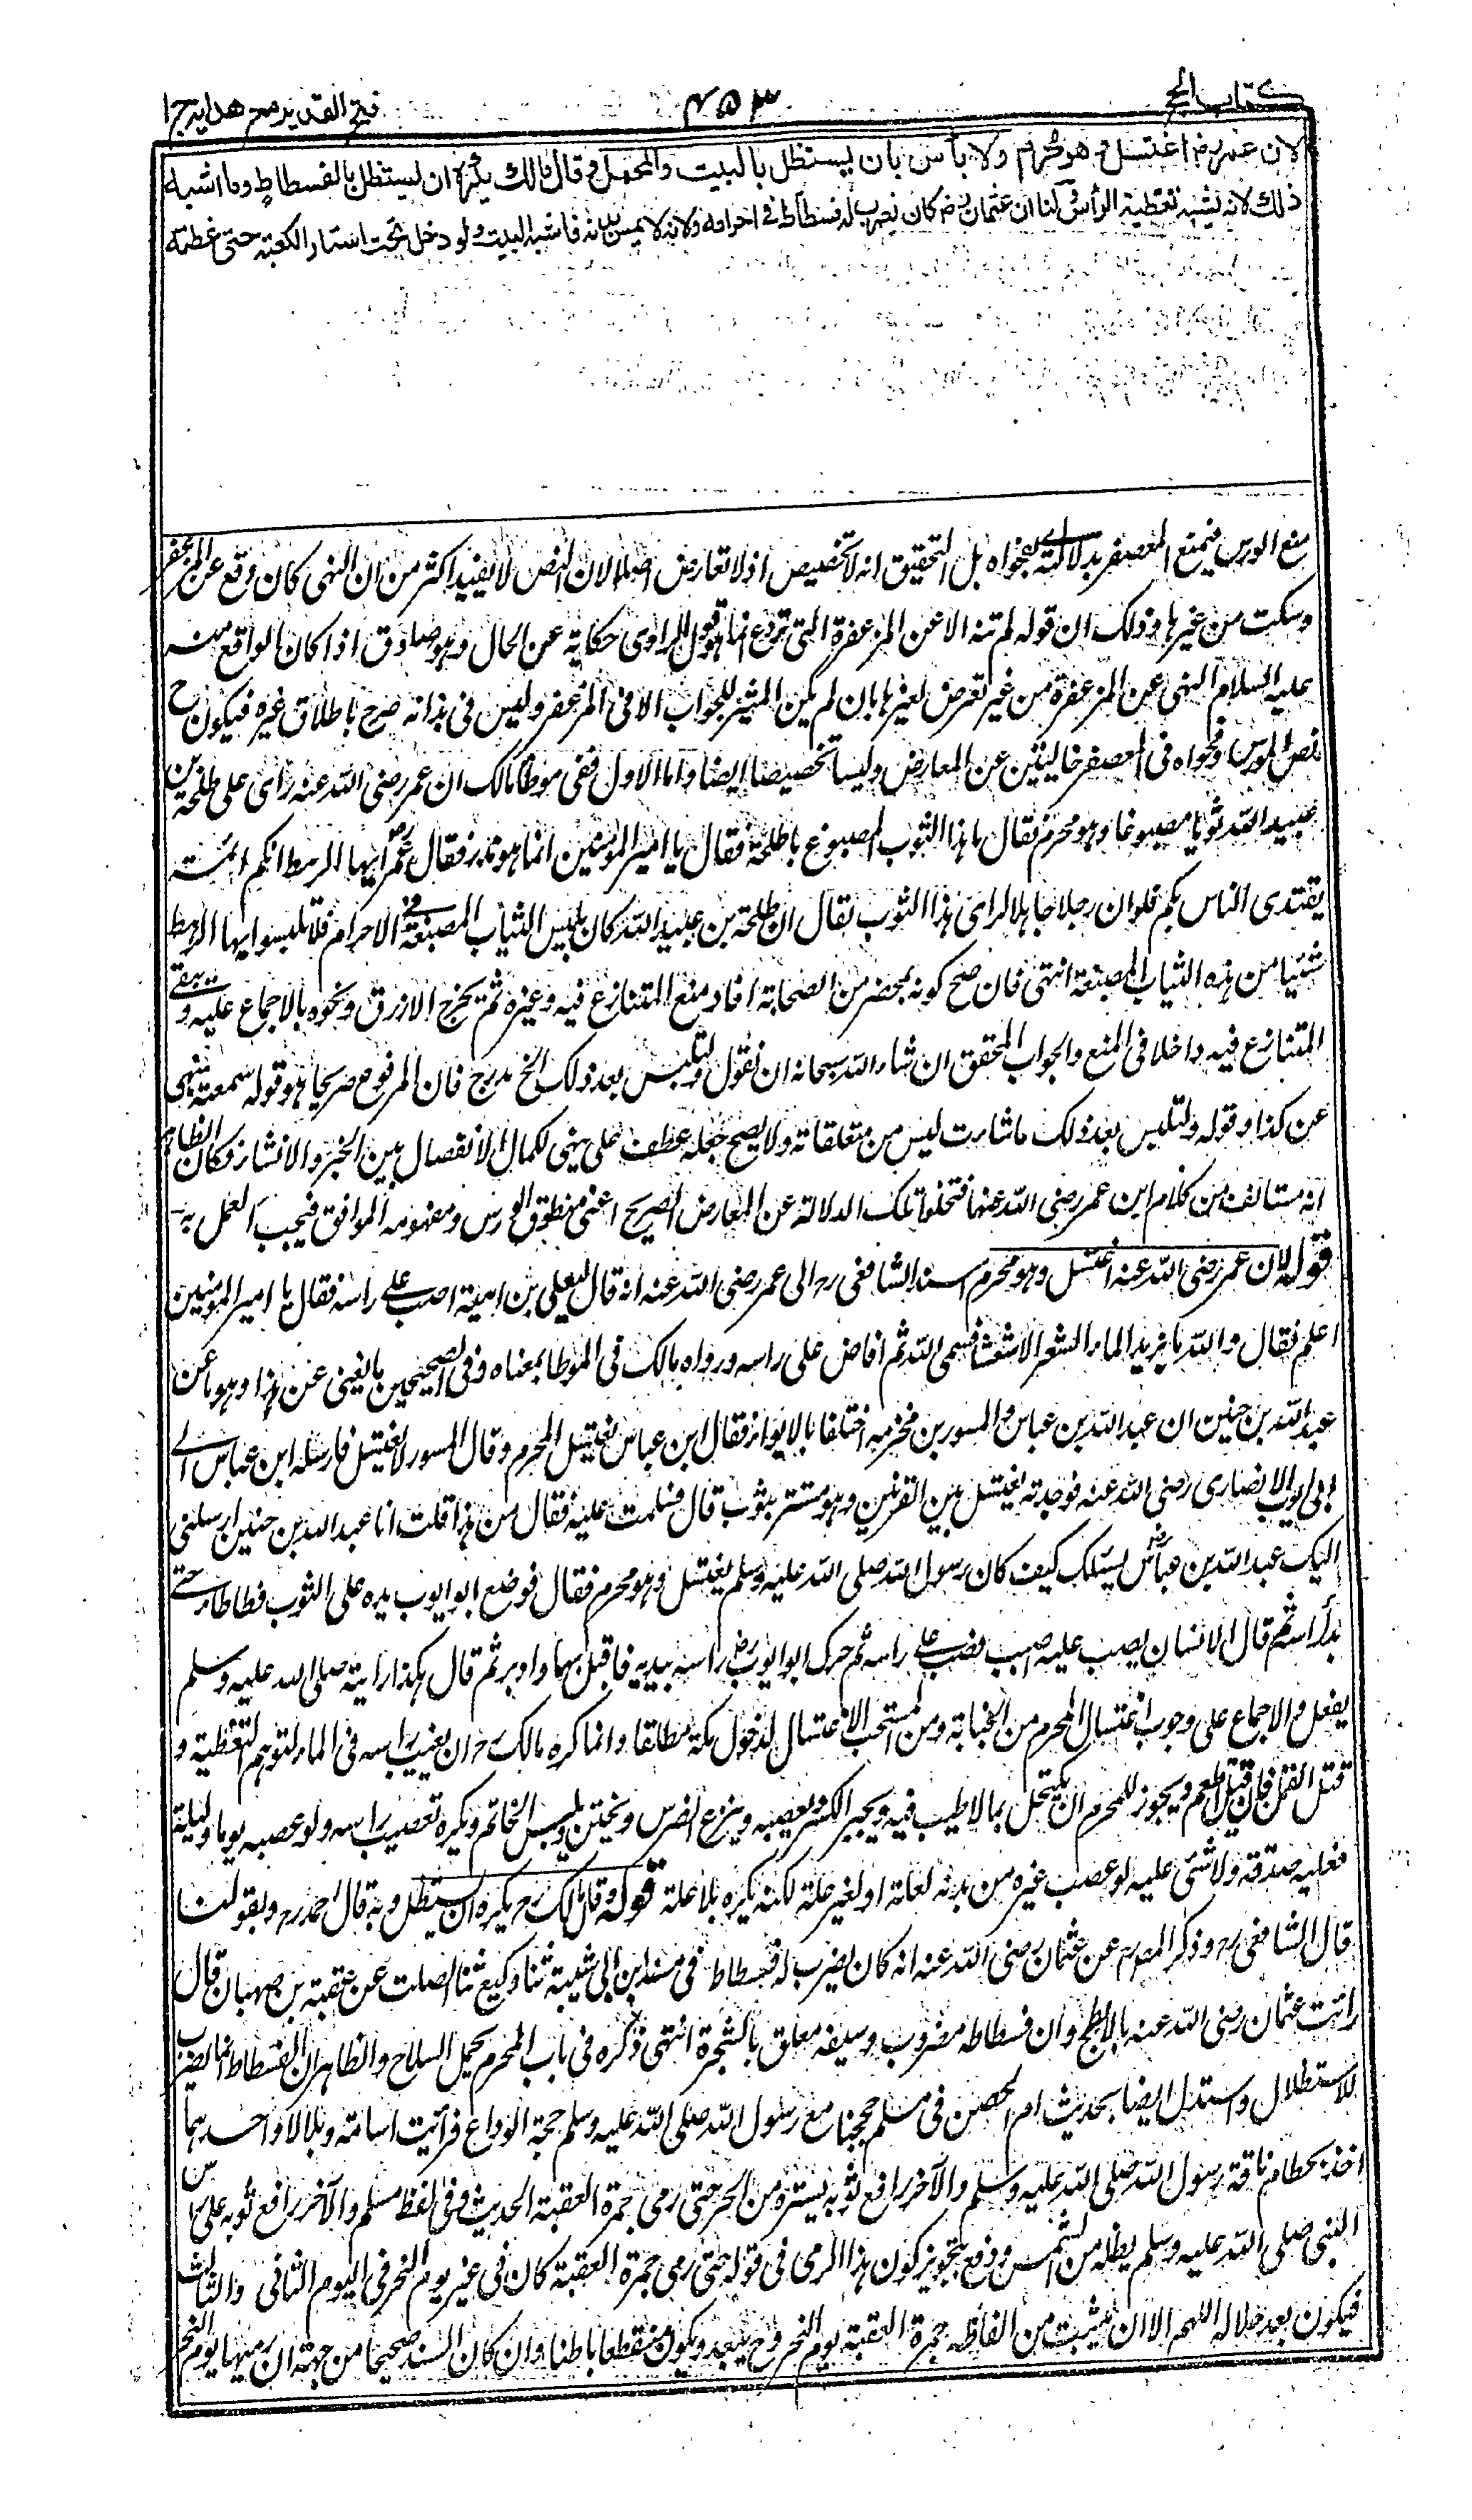 كتاب الحج
۴۵۳
فتح القدير مع هدايه ج ا
لان عمر رض اغتسل وهو محرم ولا بأس بان يستظل بالبيت والمحمل وقال مالك يكره ان يستظل بالفسطاط وما اشبه
ذلك لانه يشبه تغطية الرأس ولنا ان عثمان رض كان يضرب له فسطاط في احرامه ولانه لا يمس بدنه فاشبه البيت ولو دخل تحت استار الكعبة حتى غطته
منع الورس فيمنع المعصفر بدلالته بفحواه بل التحقيق انه لا تخصيص اذ لا تعارض اصلا لان النص لا يفيد اكثر من ان النهى كان وقع عن المزعفر
وسكت من غيرها وذلك ان قوله لم تنه الا عن المزعفرة التى تردع انما هو قول الراوى حكاية عن الحال وهو صادق اذا كان الواقع منه
عليه السلام النهى عن المزعفرة من غير تعرض لغيرها بان لم يكن المثير للجواب الا فى المزعفر وليس فى هذا انه صرح باطلاق غيره فيكون ح
نص الورس وفحواه فى المعصفر خاليين عن المعارض وليسا تخصيصا ايضا واما الاول ففى موطا مالك ان عمر رضى الله عنه رأى على طلحة بن
عبيد الله ثوبا مصبوغا وهو محرم فقال ما هذا الثوب المصبوغ يا طلحة فقال يا امير المؤمنين انما هو مدر فقال عمر رض ايها الرهط انكم ائمة
يقتدى الناس بكم فلو ان رجلا جاهلا راى هذا الثوب لقال ان طلحة بن عبيد الله كان يلبس الثياب المصبغة فى الاحرام فلا تلبسوا ايها الرهط
شيئا من هذه الثياب المصبغة انتهى فان صح كونه بمحضر من الصحابة افاد منع المتنازع فيه وغيره ثم يخرج الازرق ونحوه بالاجماع عليه ويبقى
المتنازع فيه داخلا فى المنع والجواب المحقق ان شاء الله سبحانه ان نقول ولتلبس بعد ذلك الخ مدرج فان المرفوع صريحا هو قوله سمعته ينهى
عن كذا وقوله ولتلبس بعد ذلك ما شاءت ليس من متعلقاته ولا يصح جعله عطفا على ينهى لكمال الانفصال بين الخبر والانشاء فكان الظاهر
انه مستانف من كلام ابن عمر رضى الله عنهما فتخلو تلك الدلالة عن المعارض الصريح اعنى منطوق الورس ومفهومه الموافق فيجب العمل به
قوله لان عمر رضى الله عنه اغتسل وهو محرم اسند الشافعى رح الى عمر رضى الله عنه انه قال ليعلى بن امية اصبب على راسه فقال يا امير المؤمنين
اعلم فقال والله ما يزيد الماء الشعر الا شعثا فسمى الله ثم افاض على راسه ورواه مالك فى الموطا بمعناه وفى الصحيحين ما يغنى عن هذا وهو ما عن
عبد الله بن حنين ان عبد الله بن عباس والمسور بن مخرمة اختلفا بالابواء فقال ابن عباس يغتسل المحرم وقال المسور لا يغتسل فارسله ابن عباس الى
ابى ايوب الانصارى رضى الله عنه فوجدته يغتسل بين القرنين وهو مستتر بثوب قال فسلمت عليه فقال من هذا قلت انا عبد الله بن حنين ارسلنى
اليك عبد الله بن عباس رض يسئلك كيف كان رسول الله صلى الله عليه وسلم يغتسل وهو محرم فقال فوضع ابو ايوب يده على الثوب فطاطاه حتى
بدأ راسه ثم قال لانسان يصب عليه اصبب فصب على راسه ثم حرك ابو ايوب رض راسه بيديه فاقبل بهما وادبر ثم قال هكذا رايته صلى الله عليه وسلم
يفعل والاجماع على وجوب اغتسال المحرم من الجنابة ومن المستحب الاغتسال لدخول مكة مطلقا وانما كره مالك رح ان يغيب راسه فى الماء لتوهم التغطية و
قتل القمل فان قتل اطعم ويجوز للمحرم ان يكتحل بما لا طيب فيه ويجبر الكسر ويعصبه وينزع الضرس ويختتن ويلبس الخاتم ويكره تعصيب راسه ولو عصبه يوما وليلة
فعليه صدقة ولا شئ عليه لو عصب غيره من بدنه لعلة او لغير علة لكنه يكره بلا علة قوله وقال مالك رح يكره ان يستظل وبه قال احمد رح وبقولنا
قال الشافعى رح وذكر المص رح عن عثمان رضى الله عنه انه كان يضرب له فسطاط فى مسند ابن ابى شيبة ثنا وكيع ثنا الصلت عن عقبة بن صهبان قال
رائت عثمان رضى الله عنه بالابطح وان فسطاطه مضروب وسيفه معلق بالشجرة انتهى ذكره فى باب المحرم يحمل السلاح والظاهر ان الفسطاط انما يضرب
للاستظلال واستدل ايضا بحديث ام الحصين فى مسلم حججنا مع رسول الله صلى الله عليه وسلم حجة الوداع فرائيت اسامة وبلالا واحدهما
اخذ بخطام ناقة رسول الله صلى الله عليه وسلم والآخر رافع ثوبه يستره من الحر حتى رمى جمرة العقبة الحديث وفى لفظ مسلم والآخر رافع ثوبه على راس
النبى صلى الله عليه وسلم يظله من الشمس ودفع بتجويز كون هذا الرمى فى قوله حتى رمى جمرة العقبة كان فى غير يوم النحر فى اليوم الثانى والثالث
فيكون بعد حلاله اللهم الا ان يثبت من الفاظه جمرة العقبة يوم النحر وح يبعد ويكون منقطعا باطنا وان كان السند صحيحا من جهة ان رميها يوم النحر